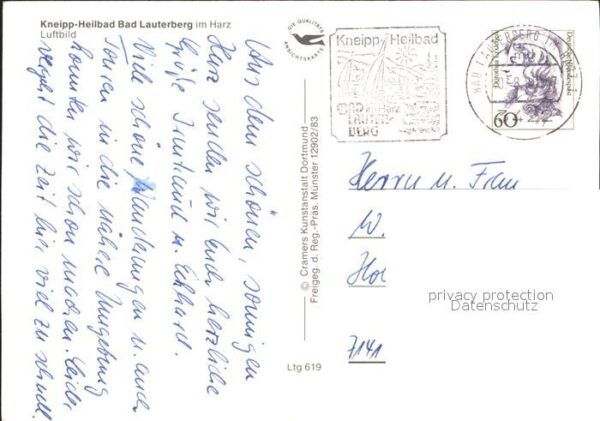 Kneipp-Heilbad Bad Lauterberg im Harz
Luftbild
DIE QUALITÄTS
ANSICHTSKARTE
Aus dem schönen, sonnigen
Harz senden wir Euch herzliche
Grüße Irmtraud u. Eckhard.
Viele schöne Wanderungen u. auch
Touren in die nähere Umgebung
konnten wir schon machen. Leider
vergeht die Zeit hier viel zu schnell.
© Cramers Kunstanstalt Dortmund
Freigeg. d. Reg.-Präs. Münster 12902/83
Ltg 619
Kneipp-Heilbad
BAD im Harz
LAUTER-
BERG
BAD LAUTERBERG IM HARZ
Deutsche Bundespost
60
Herrn u. Frau
W.
Hol
7141
privacy protection
Datenschutz